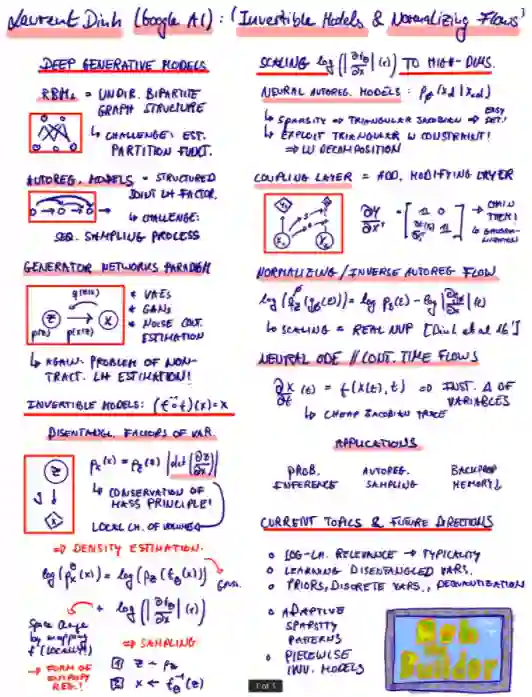 Laurent Dinh (Google AI): (Invertible Models & Normalizing Flows)
DEEP GENERATIVE MODELS
RBMs = UNDIR. BIPARTITE
GRAPH STRUCTURE
↳ CHALLENGE: EST.
PARTITION FUNCT.
AUTOREG. MODELS = STRUCTURED
JOINT LH FACTOR.
↳ CHALLENGE:
SEQ. SAMPLING PROCESS
GENERATOR NETWORKS PARADIGM
q(z|x)
z → x
p(z) p(x|z)
* VAEs
* GANs
* NOISE CONT.
ESTIMATION
↳ AGAIN: PROBLEM OF NON-
TRACT. LH ESTIMATION!
INVERTIBLE MODELS: (f⁻¹∘f)(x) = x
DISENTANGL. FACTORS OF VAR.
z
x
p_x(x) = p_z(z) |det(∂z/∂x)|
↳ CONSERVATION OF
MASS PRINCIPLE!
LOCAL CH. OF VOLUME
⇒ DENSITY ESTIMATION:
log(p_x(x)) = log(p_z(f_θ(x)))
+ log(|∂f_θ/∂x|(x))
Space
by mapping
f (LOCALLY)
→ FORM OF
ENTROPY
REG.!
⇒ SAMPLING
1 z ~ p_z
2 x ← f_θ⁻¹(z)
SCALING log(|∂f_θ/∂x|(x)) TO HIGH-DIMS.
NEURAL AUTOREG. MODELS: p_θ(x_d|x_<d)
↳ SPARSITY ⇒ TRIANGULAR JACOBIAN ⇒ EASY DET!
↳ EXPLOIT TRIANGULAR W CONSTRAINT!
⇒ LU DECOMPOSITION
COUPLING LAYER = ADD. MODIFYING LAYER
→ CHAIN
THEM!
NORMALIZING/INVERSE AUTOREG FLOW
↳ SCALING = REAL NVP [Dinh et al 16']
NEURAL ODE // CONT. TIME FLOWS
∂x/∂t (t) = f(x(t), t) ⇒ INST. Δ OF
VARIABLES
↳ CHEAP JACOBIAN TRACE
APPLICATIONS
PROB. AUTOREG. BACKPROP
INFERENCE SAMPLING MEMORY↓
CURRENT TOPICS & FUTURE DIRECTIONS
○ LOG-LH. RELEVANCE → TYPICALITY
○ LEARNING DISENTANGLED VARS.
○ PRIORS, DISCRETE VARS., DEQUANTIZATION
○ ADAPTIVE
SPARSITY
PATTERNS
○ PIECEWISE
INV. MODELS
Bob
the
Builder
1 of 1